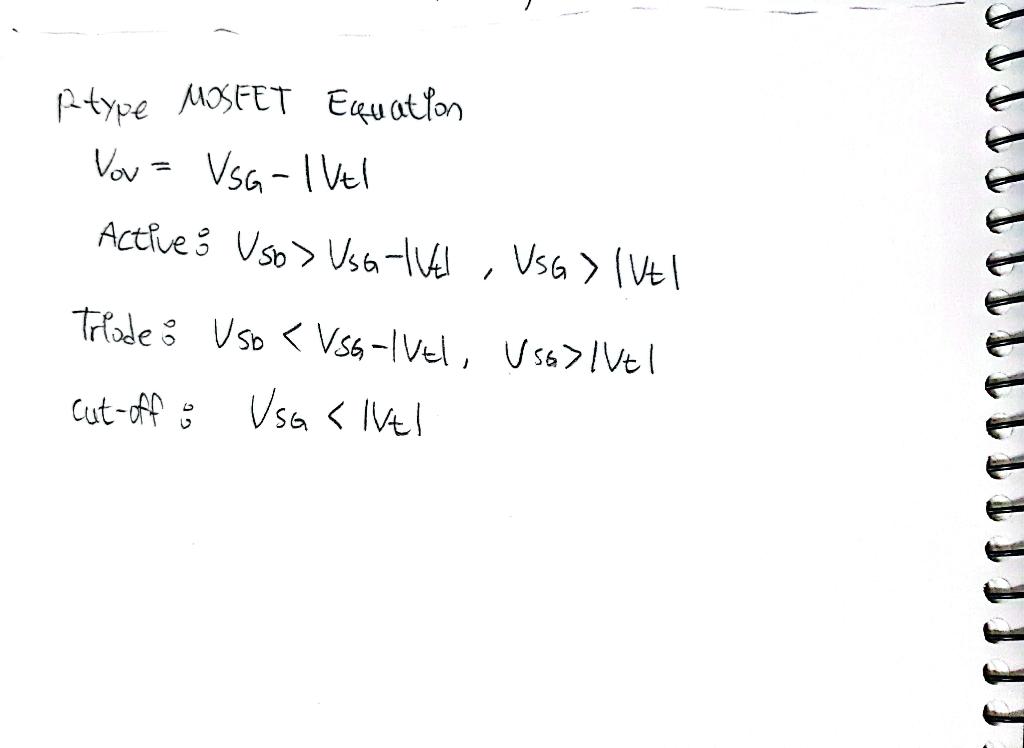 P-type MOSFET Equation
Vov = VSG - |Vt|
Active: VSD > VSG - |Vt| , VSG > |Vt|
Triode: VSD < VSG - |Vt| , VSG > |Vt|
cut-off: VSG < |Vt|